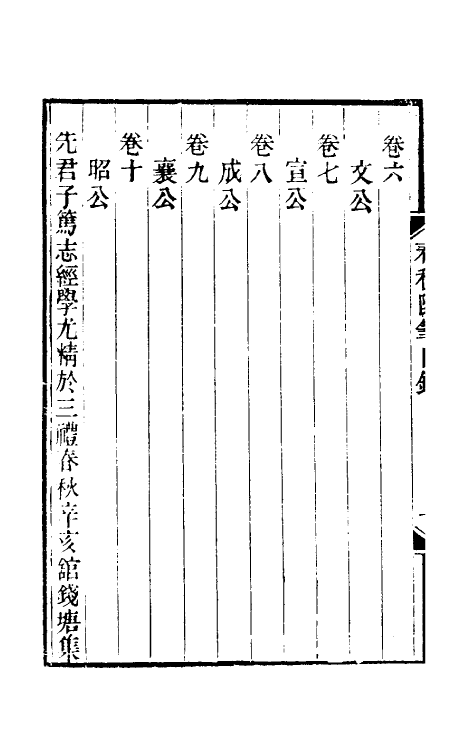 卷六
文公
卷七
宣公
卷八
成公
卷九
襄公
卷十
昭公
先君子篤志經學尤精於三禮春秋辛亥舘錢塘集